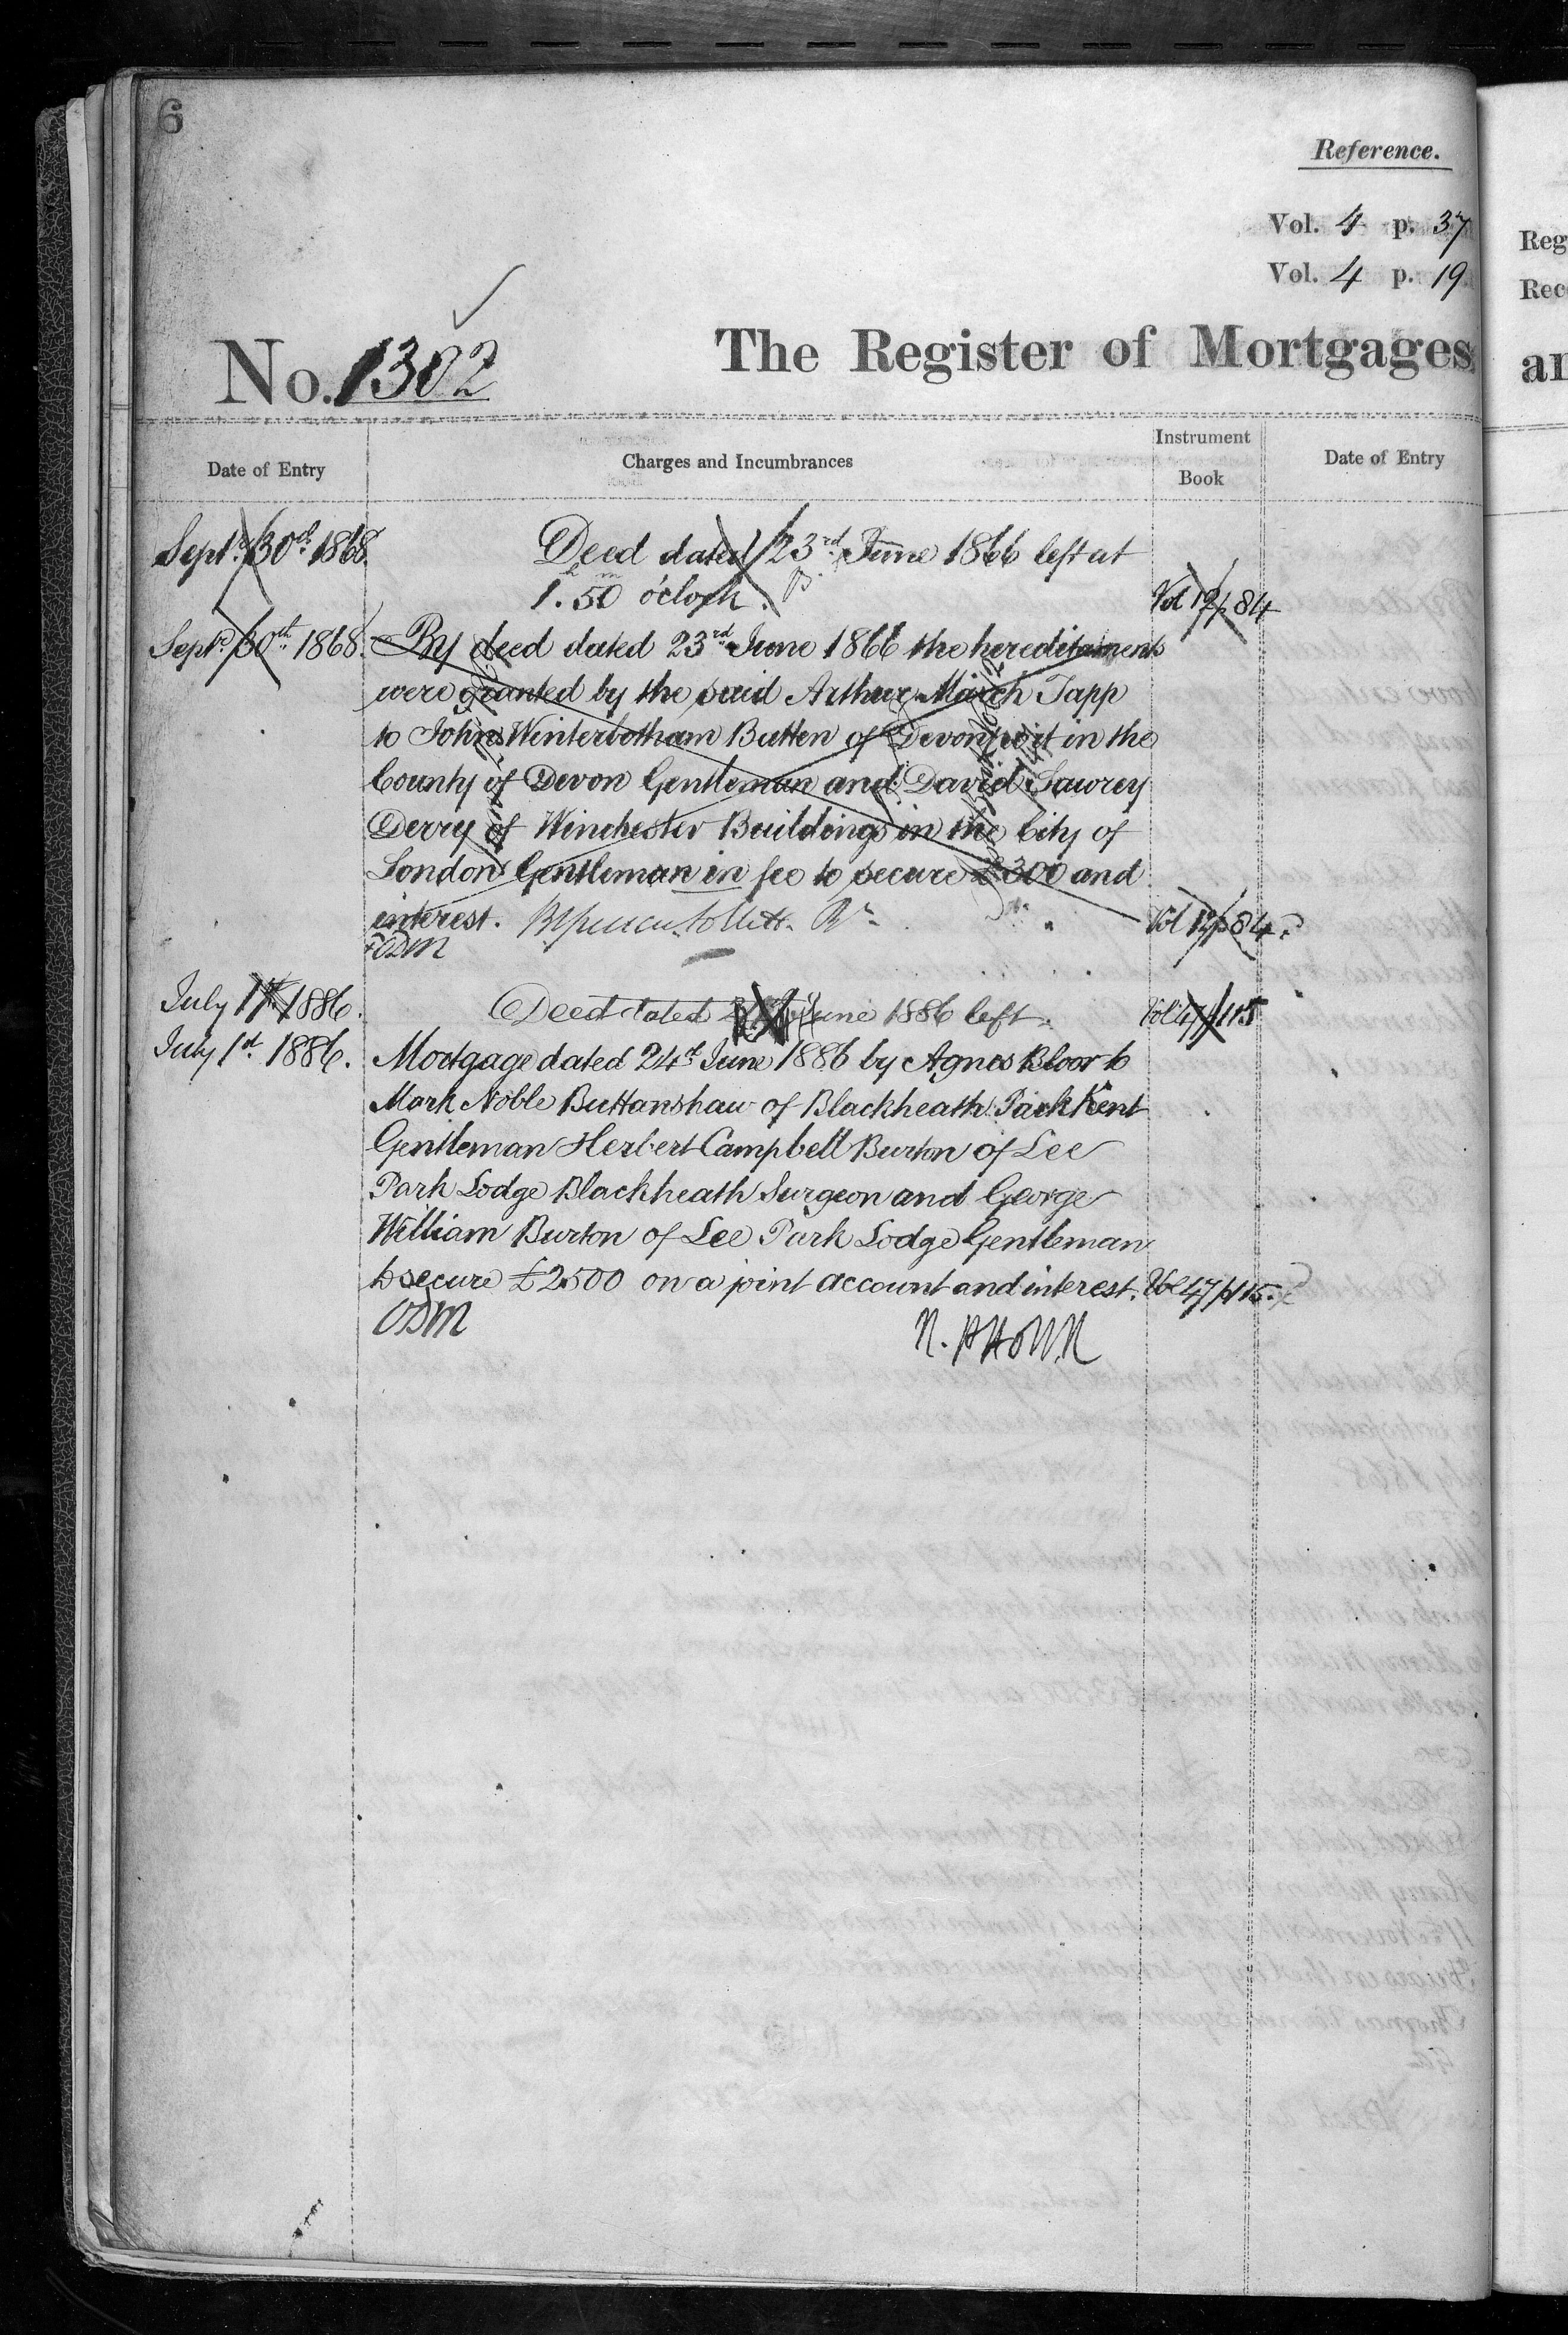 6
Reference.
Vol. 4 p. 37
Vol. 4 p. 19
No. 1302
The Register of Mortgages
Date of Entry
Charges and Incumbrances
Instrument Book
Date of Entry
Septr. 30th. 1868.
Deed dated 23rd. June 1866 left at
1h. 50m o'clock.
Vol 12/p 84
Septr. 30th. 1868.
By deed dated 23rd June 1866 the hereditaments
were granted by the said Arthur March Tapp
to John Winterbotham Batten of Devonport in the
County of Devon Gentleman and David Sawrey
Derry of Winchester Buildings in the City of
London Gentleman in fee to secure £300 and
interest.
Vol 12/p 84.
ODM
July 1st. 1886.
Deed dated June 1886 left.
Vol 47/p 115
July 1st. 1886.
Mortgage dated 24th June 1886 by Agnes Bloor to
Mark Noble Buttanshaw of Blackheath Park Kent
Gentleman Herbert Campbell Burton of Lee
Park Lodge Blackheath Surgeon and George
William Burton of Lee Park Lodge Gentleman
to secure £2500 on a joint account and interest.
Vol 47/p 115.
ODM
Reg
Rec
an